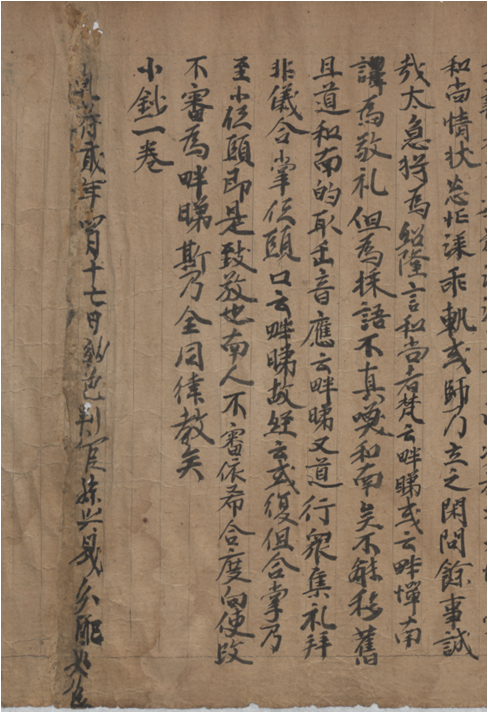 和尚情狀怱忙誠乖軌或師乃立之閑問餘事誠
哉太急將為紹隆言和尚者梵云畔睇或云畔憚南
譯為敬礼但為採語不真喚和南矣不能移舊
且道和南的取正音應云畔睇又道行衆集礼拜
非儀合掌低頭口云畔睇故經云或復但合掌乃
至小低頭即是致敬也南人不審依希合度向使改
不審為畔睇斯乃全同律教矣
小鈔一卷
苻貳年四月十七日 色判官